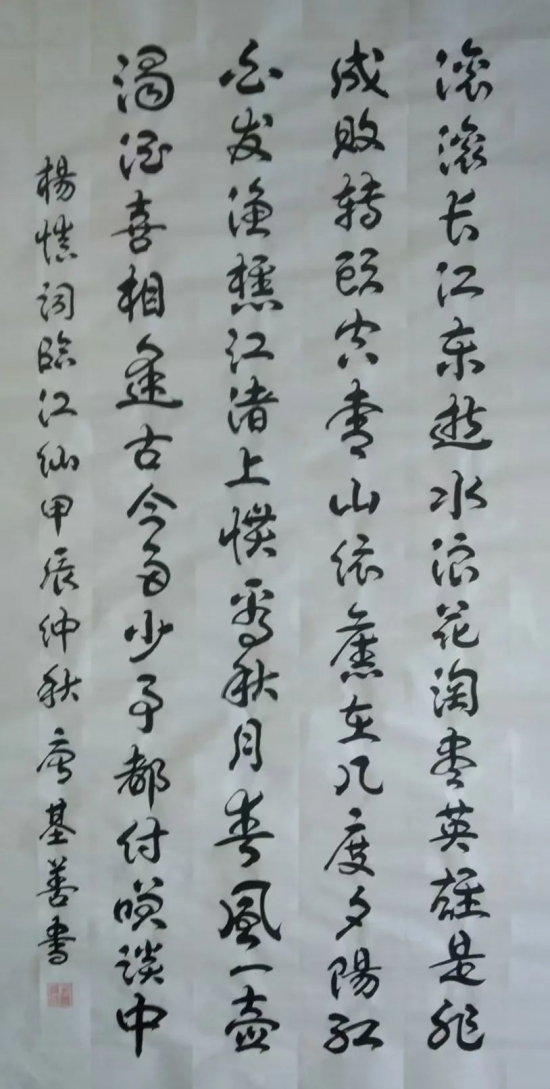 滚滚长江东逝水浪花淘尽英雄是非
成败转头空青山依旧在几度夕陽红
白发渔樵江渚上惯看秋月春風一壶
濁酒喜相逢古今多少事都付笑谈中
楊慎词臨江仙甲辰仲秋 基善书